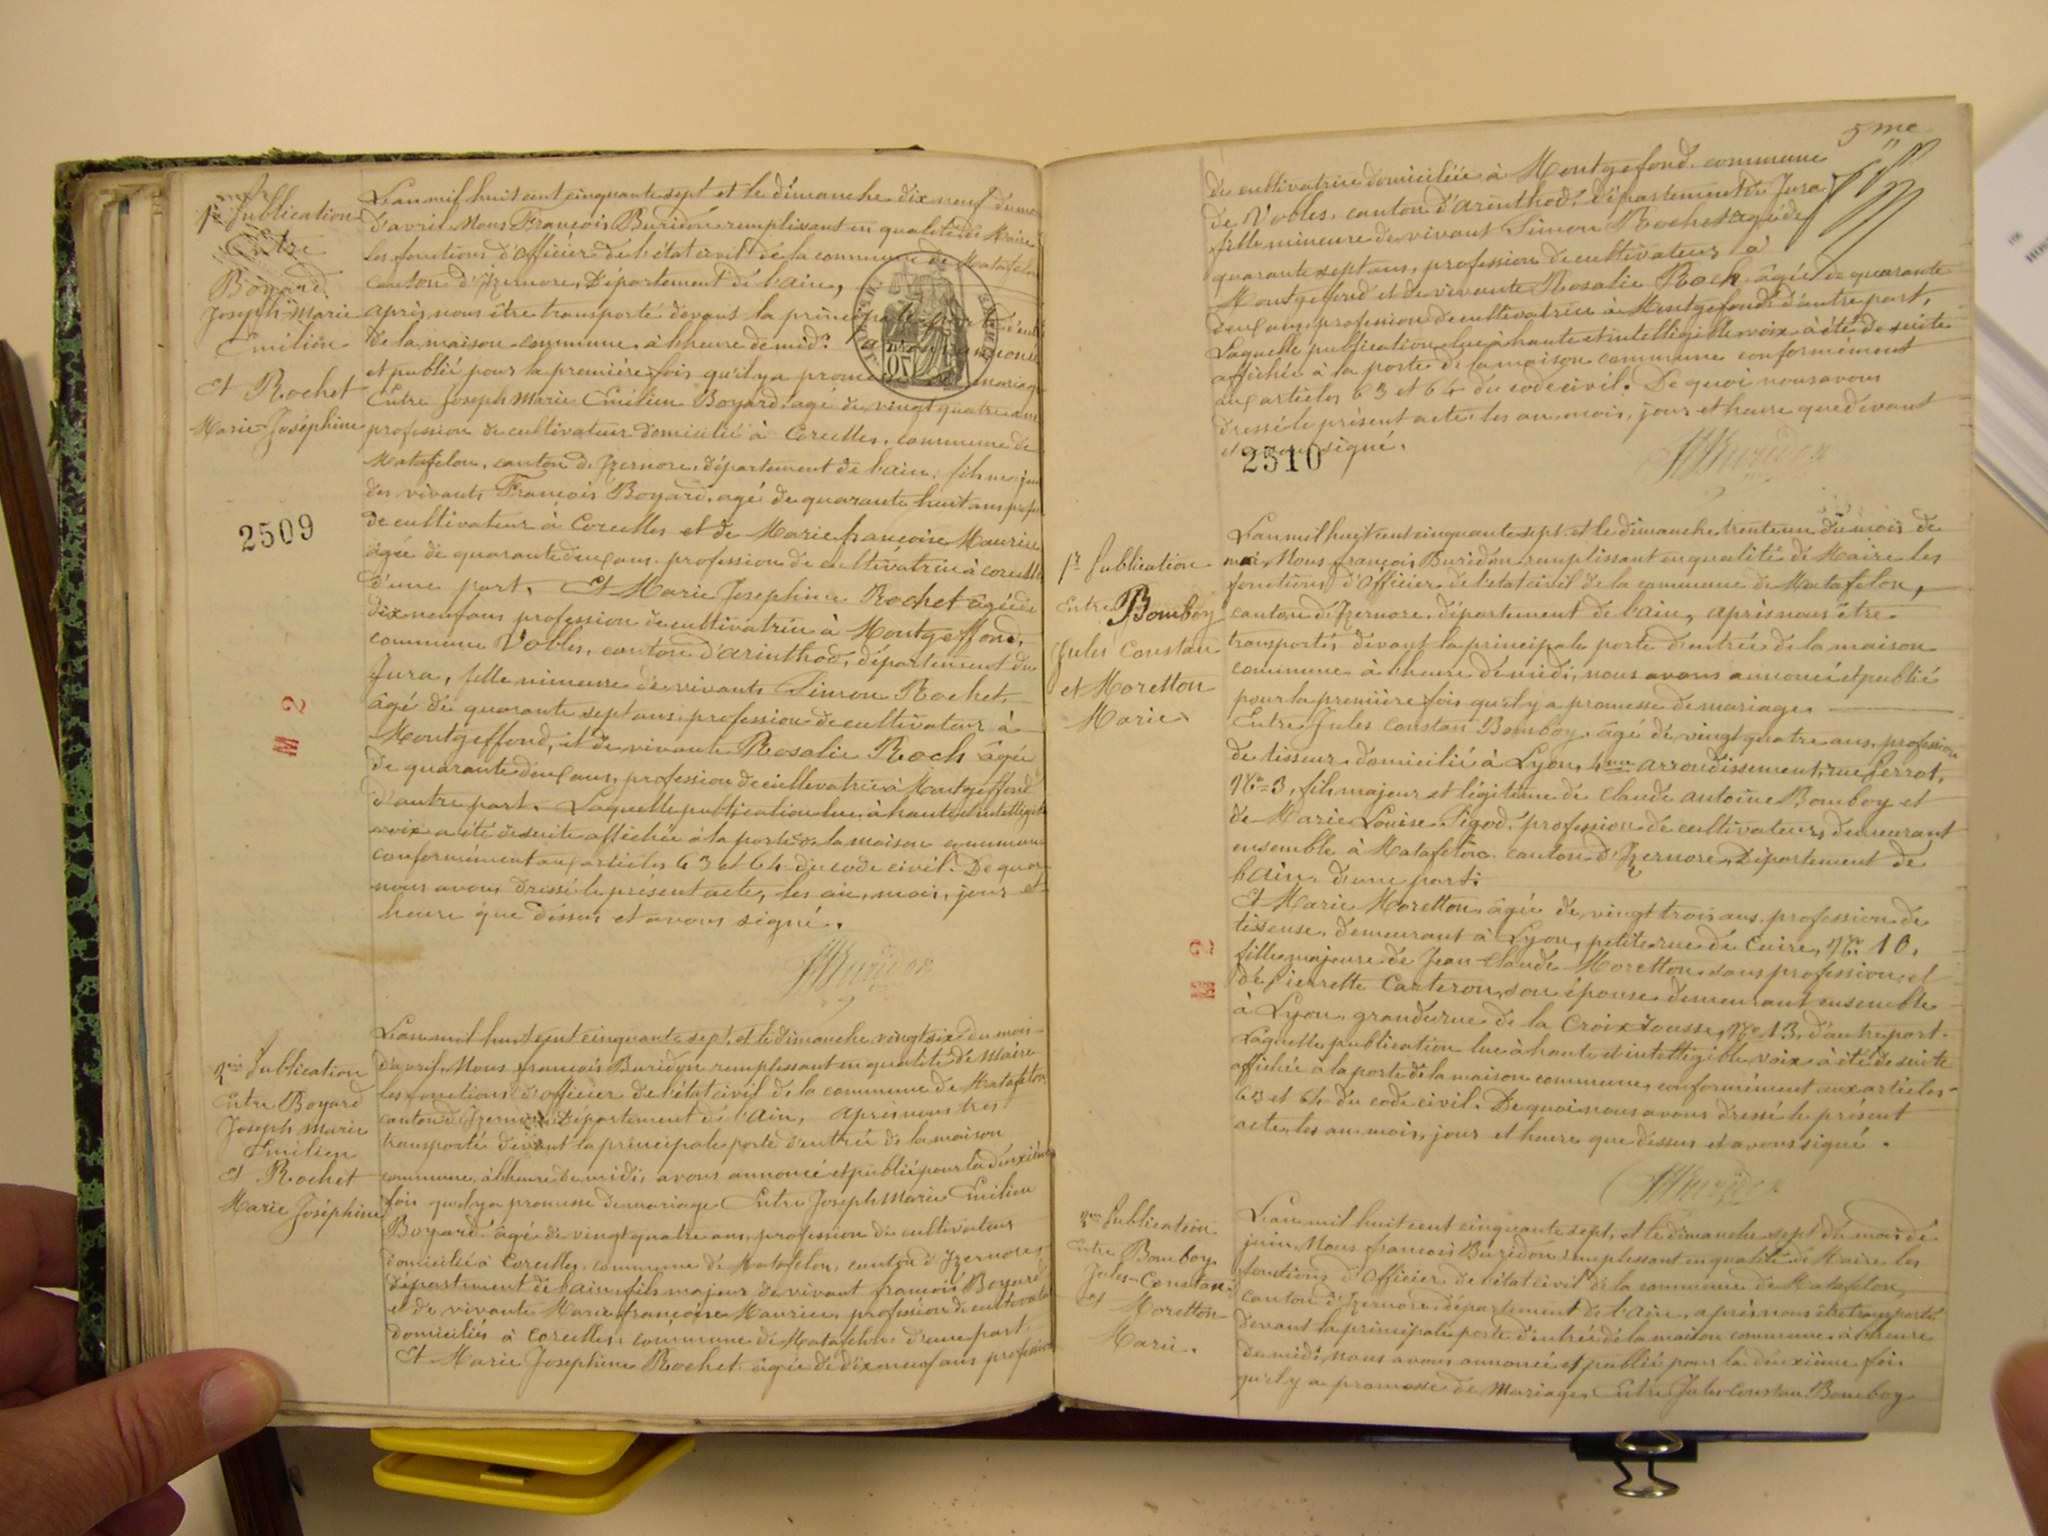 1re Publication
Entre
Boyard
Joseph Marie
Emilien
Et Rochet
Marie Joséphine
2509
M 2
L'an mil huit cent cinquante sept et le dimanche dix neuf du mois
d'avril Nous François Buridon remplissant en qualité de Maire
les fonctions d'Officier de l'état civil de la commune de Matafelon
canton d'Izernore, Département de l'ain,
après nous être transporté devant la principale d'entrée
de la maison commune, à l'heure de midi annoncé
et publié pour la première fois qu'il y a promesse mariage
Entre Joseph Marie Emilien Boyard, agé de vingt quatre ans
profession de cultivateur domicilié à Corcelles, commune de
Matafelon, canton d'Izernore, département de l'ain, fils majeur
des vivants François Boyard, agé de quarante huit ans profes
de cultivateur à Corcelles et de Marie françoise Maurice
âgée de quarante deux ans profession de cultivatrice à corcelles
d'une part. Et Marie Josephine Rochet âgée de
dix neuf ans profession de cultivatrice à Montgeffond,
commune Vobles, canton d'arinthod, département du
Jura, fille mineure de vivants Simon Rochet
âgé de quarante sept ans, profession de cultivateur à
Montgeffond, et de vivante Rosalie Roch âgée
de quarante deux ans, profession de cultivatrice à Montgeffond
d'autre part. Laquelle publication lue à haute et intelligible
voix a été de suite affichée à la porte de la maison commune
conformément aux articles 63 et 64 du code civil. De quoi
nous avons dressé le présent acte, les an, mois, jour et
heure que dessus et avons signé.
Buridon
2me Publication
Entre Boyard
Joseph Marie
Emilien
Et Rochet
Marie Joséphine
L'an mil huit cent cinquante sept, et le dimanche vingt six du mois
d'avril, Nous françois Buridon remplissant en qualité de Maire
les fonctions d'officier de l'état civil de la commune de Matafelon
canton d'Izernore Département de l'Ain, après nous
transporté devant la principale porte d'entrée de la maison
commune, à l'heure de midi, avons annoncé et publié pour la deuxième
fois qu'il y a promesse de mariage Entre Joseph Marie Emilien
Boyard âgé de vingt quatre ans, profession de cultivateur
domicilié à Corcelles, commune de Matafelon, canton d'Izernore,
département de l'ain, fils majeur de vivant françois Boyard
et de vivante Marie françoise Maurice, profession de cultivateur
domiciliés à Corcelles, commune de Matafelon d'une part.
Et Marie Josephine Rochet âgée de dix neuf ans profession
5me
de cultivatrice domiciliée à Montgefond commune
de Vobles, canton d'arinthod, département du Jura
fille mineure de vivant Simon Rochet agé de
quarante sept ans, profession de cultivateur à
Montgefond et de vivante Rosalie Roch, âgée de quarante
deux ans, profession de cultivatrice à Montgefond d'autre part,
Laquelle publication lue à haute et intelligible voix à été de suite
affichée à la porte de la maison commune conformément
aux articles 63 et 64 du code civil. De quoi nous avons
dressé le présent acte, les an, mois, jour et heure que devant
et avons signé.
2510
Buridon
1re Publication
Entre Bomboy
Jules Constan
et Moretton
Marie
M 2
L'an mil huit cent cinquante sept et le dimanche trente un du mois de
mai, Nous françois Buridon remplissant en qualité de Maire les
fonctions d'Officier de l'état civil de la commune de Matafelon,
canton d'Izernore, département de l'ain, après nous être
transporté, devant la principale porte d'entrée de la maison
commune à l'heure de midi, nous avons annoncé et publié
pour la première fois qu'il y a promesse de mariage
Entre Jules Constan Bomboy, âgé de vingt quatre ans, profession
de tisseur domicilié à Lyon, 4me arrondissement, rue Perrot,
No 3, fils majeur et légitime de Claude antoine Bomboy et
de Marie Louise Pigod, profession de cultivateurs, demeurant
ensemble à Matafelon canton d'Izernore, Département de
l'Ain, d'une part.
Et Marie Moretton, âgée de vingt trois ans, profession de
tisseuse, demeurant à Lyon, petite rue de Cuire, No 10,
fille majeure de Jean Claude Moretton sans profession et
de Pierrette Carteron, son épouse demeurant ensemble
à Lyon, grande rue de la Croix Rousse, No 13, d'autre part.
Laquelle publication lue à haute et intelligible voix à été de suite
affichée à la porte de la maison commune, conformément aux articles
63 et 64 du code civil. De quoi nous avons dressé le présent
acte, les an, mois, jour et heure que dessus et avons signé.
Buridon
2me Publication
Entre Bomboy
Jules-Constan
Et Moretton
Marie.
L'an mil huit cent cinquante sept, et le dimanche sept du mois de
juin, Nous françois Buridon remplissant en qualité de Maire les
fonctions d'Officier de l'état civil de la commune de Matafelon,
canton d'Izernore, département de l'Ain, après nous être transporté
devant la principale porte d'entrée de la maison commune à l'heure
de midi, nous avons annoncé et publié pour la deuxième fois
qu'il y a promesse de Mariage, Entre Jules Constan Bomboy